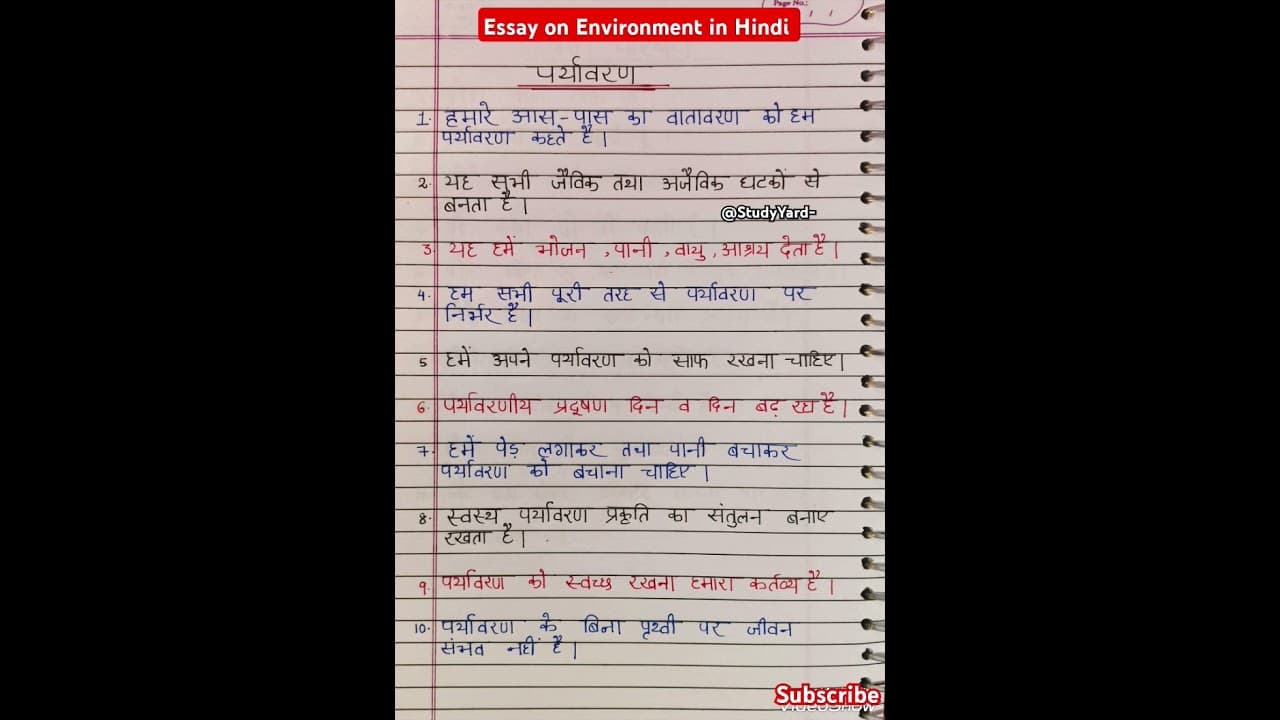 Page No.:
Essay on Environment in Hindi
पर्यावरण
1. हमारे आस-पास का वातावरण को हम
पर्यावरण कहते है।
2. यह सभी जैविक तथा अजैविक घटकों से
बनता है।
@StudyYard-
3. यह हमें भोजन , पानी , वायु , आश्रय देता है।
4. हम सभी पूरी तरह से पर्यावरण पर
निर्भर है।
5 हमें अपने पर्यावरण को साफ रखना चाहिए।
6. पर्यावरणीय प्रदूषण दिन व दिन बढ़ रहा है।
7. हमें पेड़ लगाकर तथा पानी बचाकर
पर्यावरण को बचाना चाहिए।
8. स्वस्थ पर्यावरण प्रकृति का संतुलन बनाए
रखता है।
9. पर्यावरण को स्वच्छ रखना हमारा कर्तव्य है।
10. पर्यावरण के बिना पृथ्वी पर जीवन
संभव नहीं है।
Subscribe